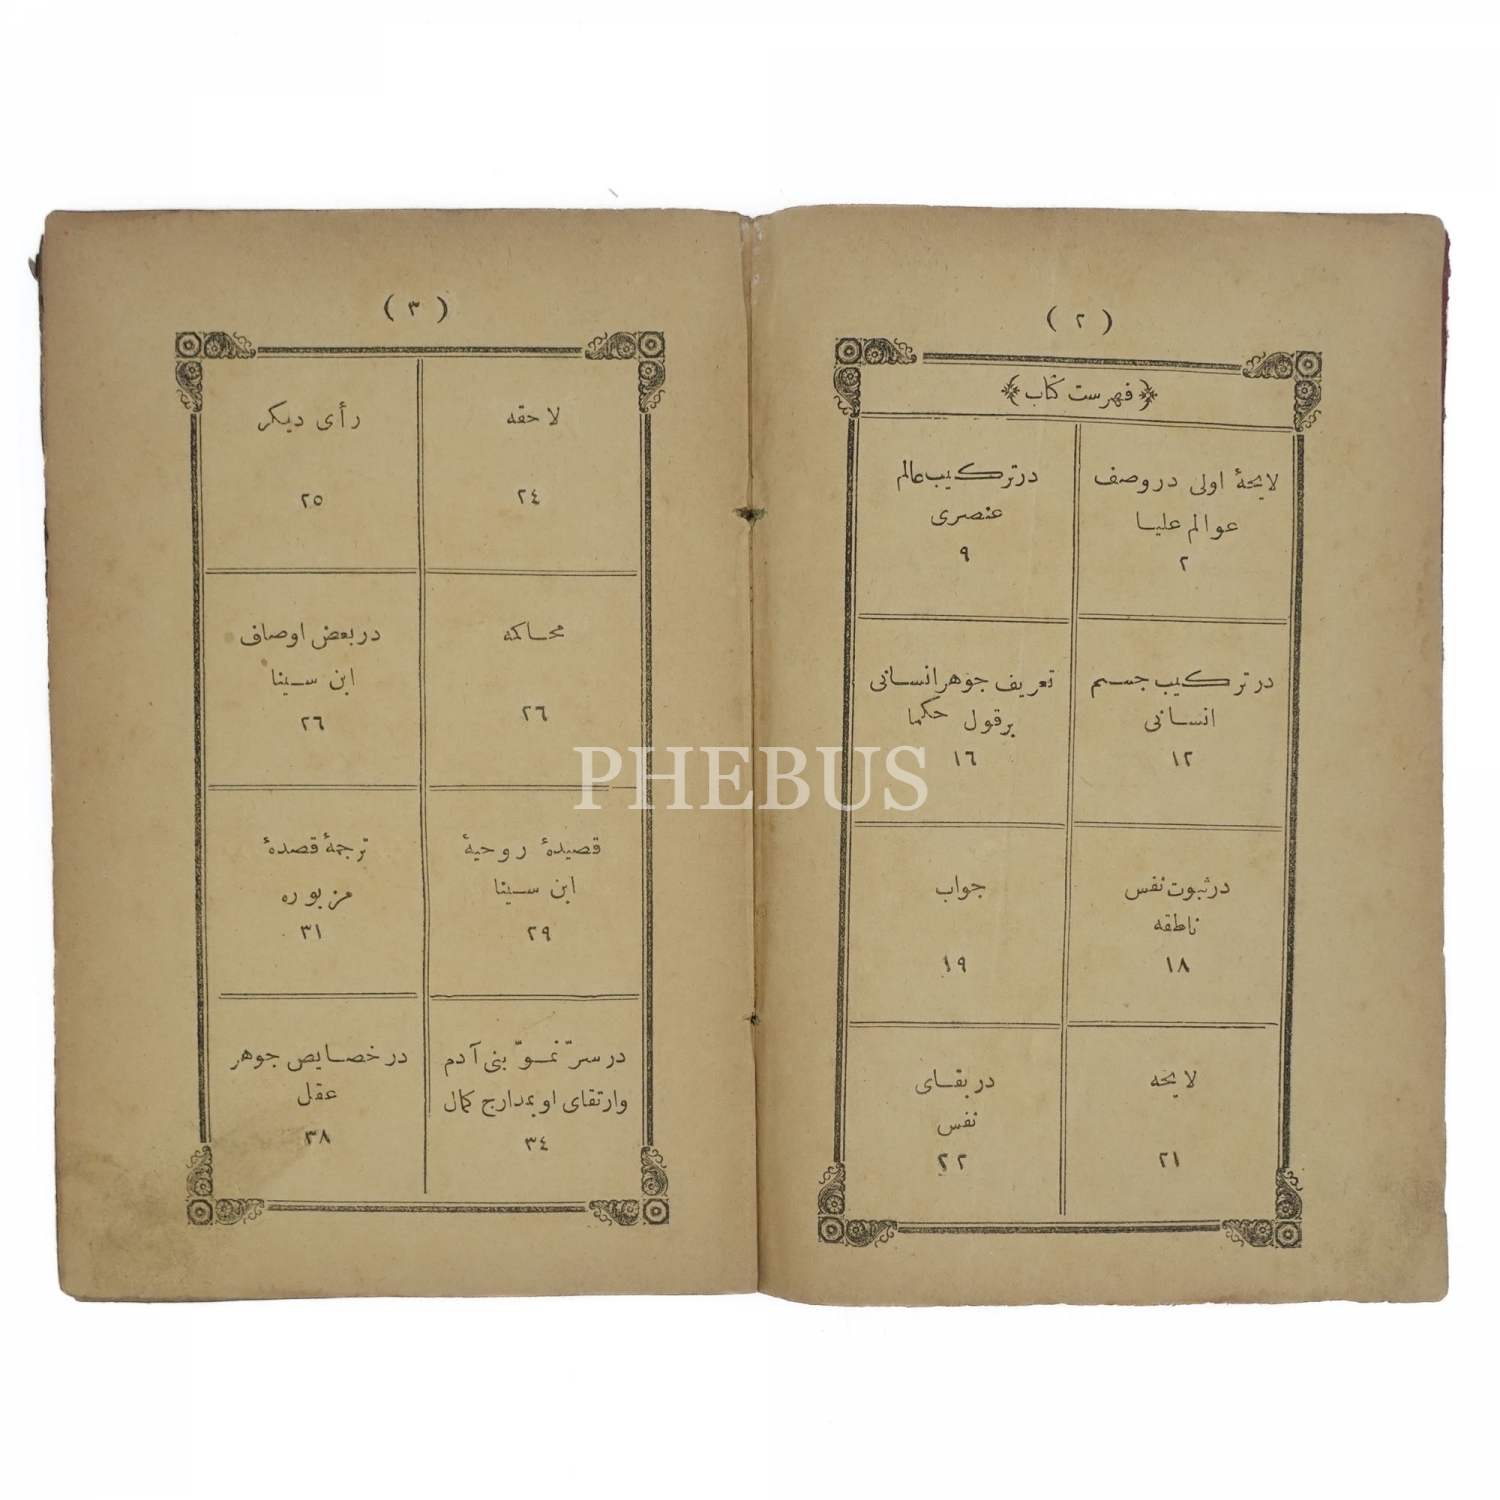 ( ٢ )
﴿ فهرست كتاب ﴾
لايحهٔ اولى در وصف
عوالم عليا
٢
در تركيب عالم
عنصرى
٩
در تركيب جسم
انسانى
١٢
تعريف جوهر انسانى
بر قول حكما
١٦
در ثبوت نفس
ناطقه
١٨
جواب
١٩
لايحه
٢١
در بقاى
نفس
٢٢
( ٣ )
لاحقه
٢٤
رأى ديكر
٢٥
محاكمه
٢٦
در بعض اوصاف
ابن سينا
٢٦
قصيدهٔ روحيهٔ
ابن سينا
٢٩
ترجمهٔ قصدهٔ
مزبوره
٣١
در سرّ نموّ بنى آدم
وارتقاى او بمدارج كمال
٣٤
در خصايص جوهر
عقل
٣٨
PHEBUS